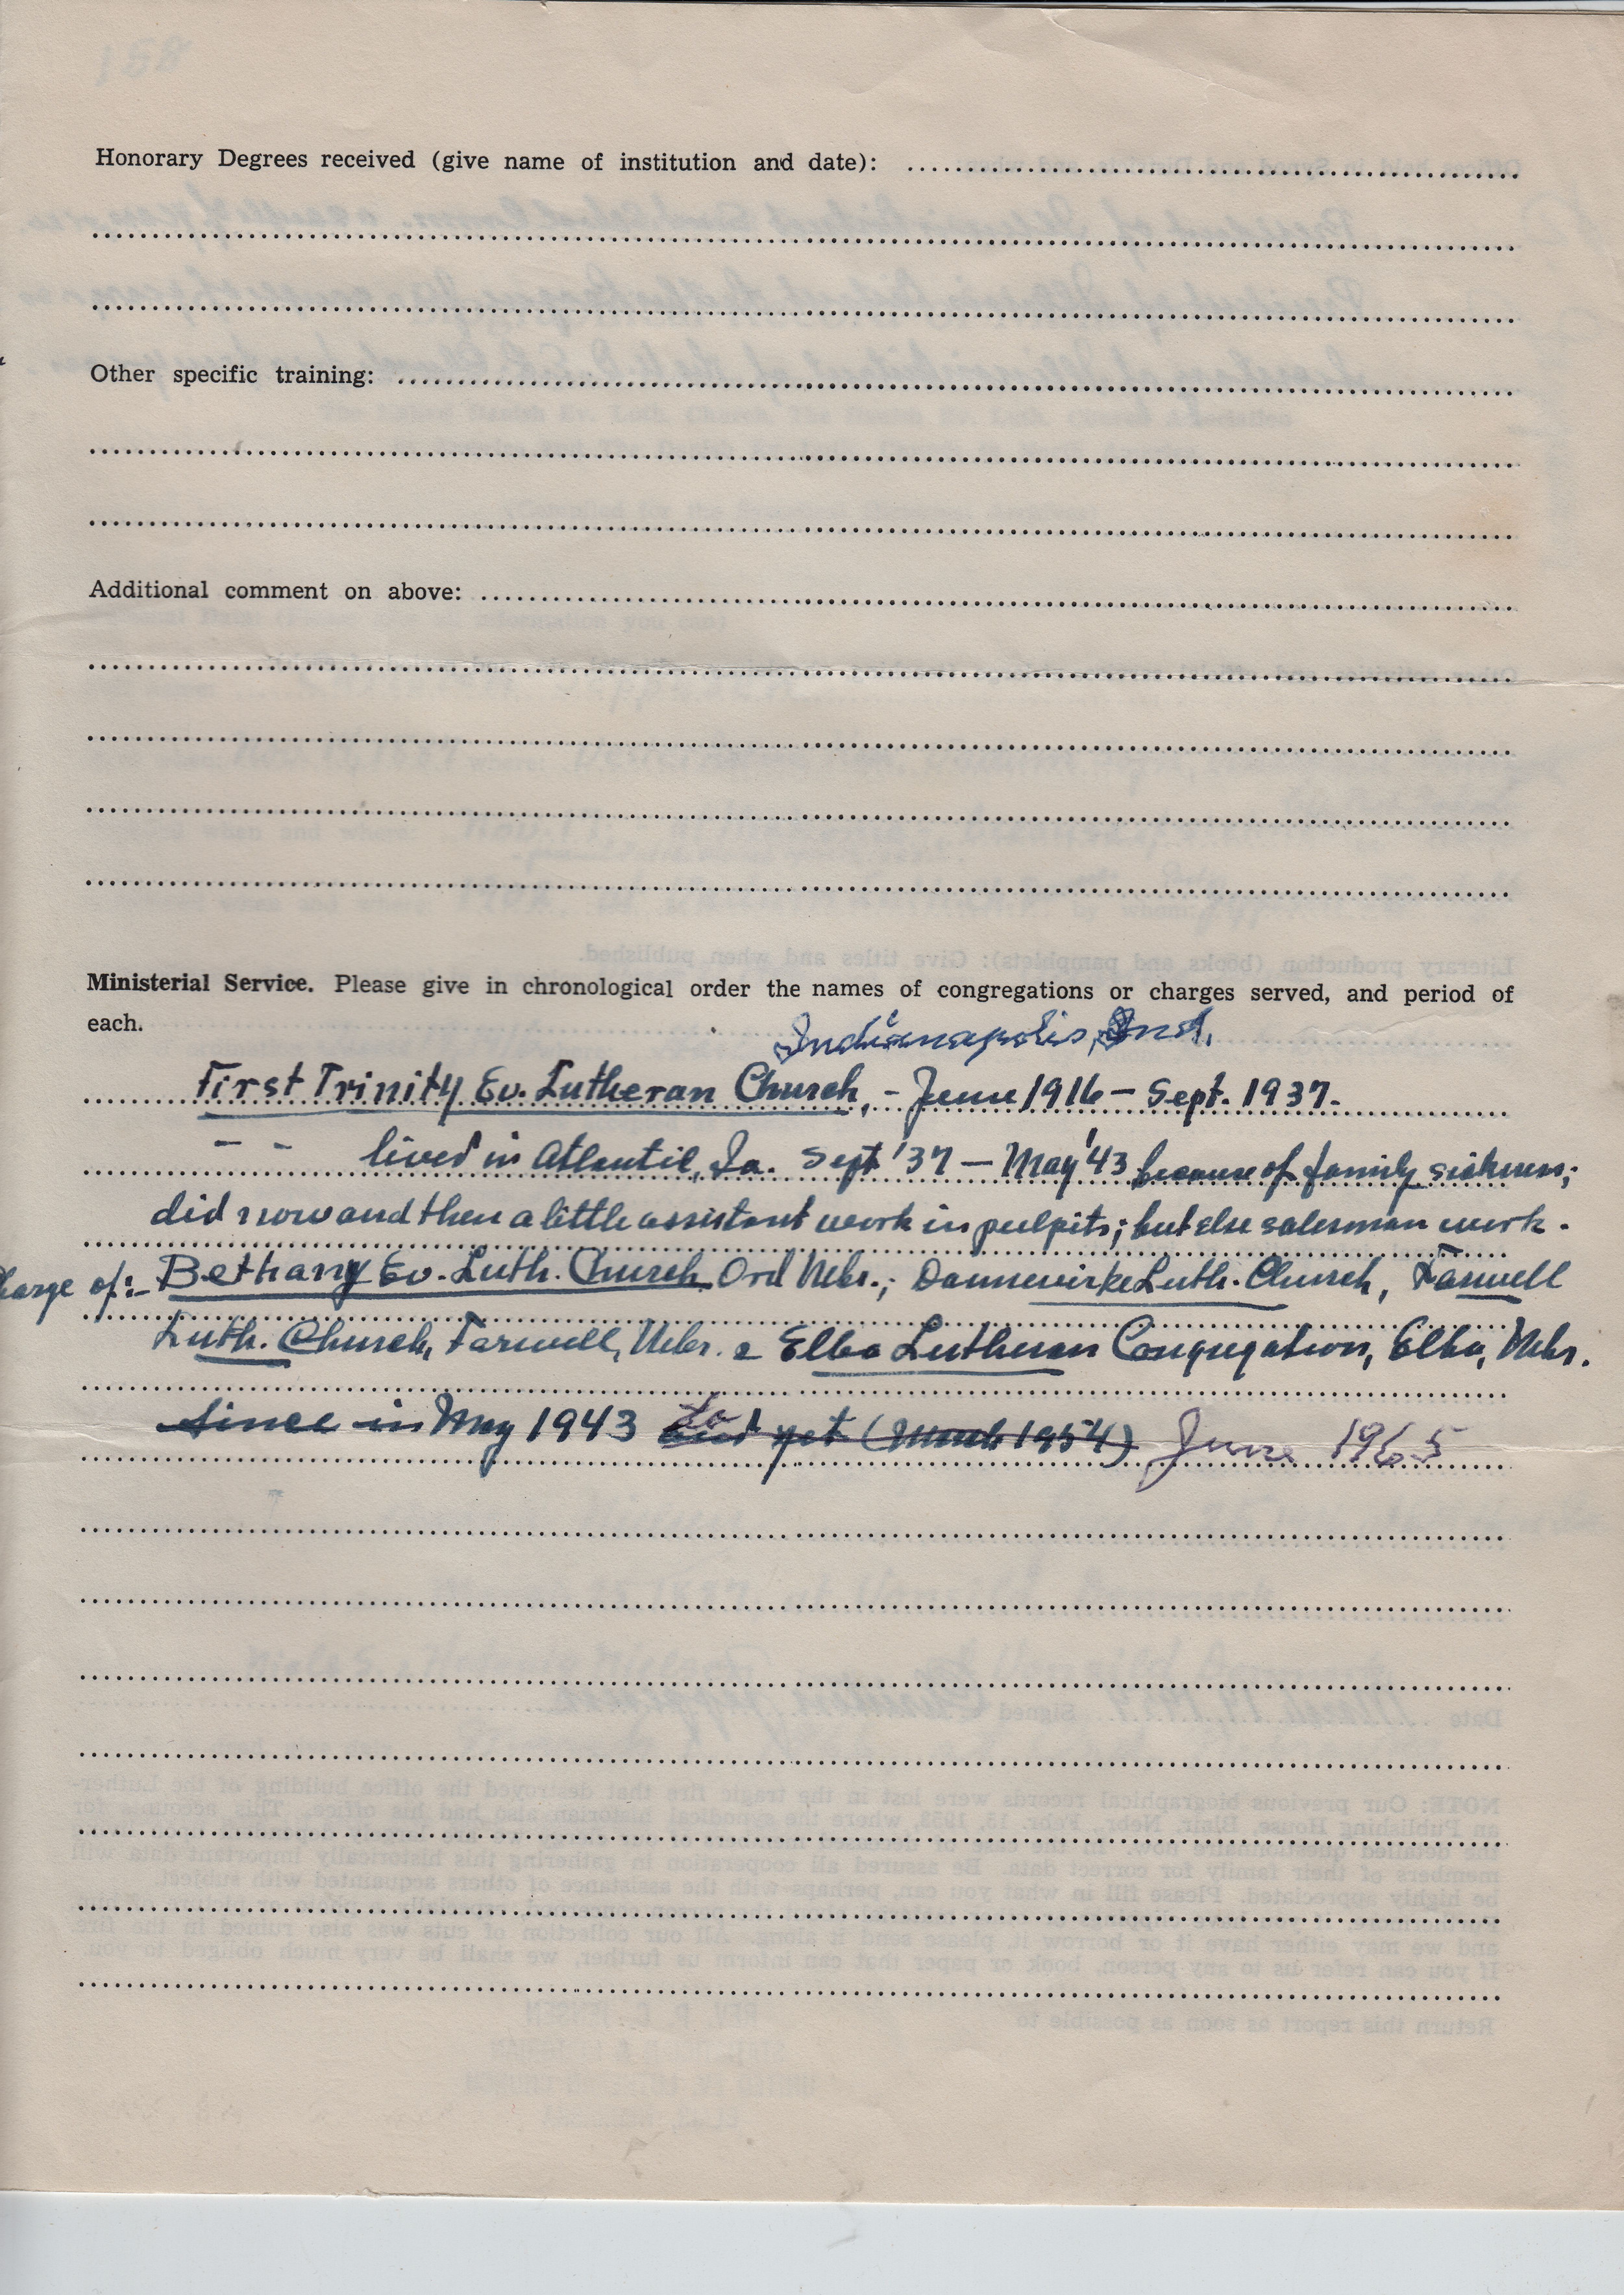 158
Honorary Degrees received (give name of institution and date):
Other specific training:
Additional comment on above:
Ministerial Service. Please give in chronological order the names of congregations or charges served, and period of
each.
Indianapolis, Ind.
First Trinity Ev. Lutheran Church, - June 1916 - Sept. 1937.
- - lived in Atlantic, Ia. Sept '37 - May '43 because of family sickness;
did now and then a little assistant work in pulpits; but else salesman work.
Charge of:- Bethany Ev. Luth. Church Ord Nebr.; Dannevirke Luth. Church, Farwell
Luth. Church, Farwell, Nebr. & Elba Lutheran Congregation, Elba, Nebr.
since in May 1943 to and yet (March 1954) June 1965